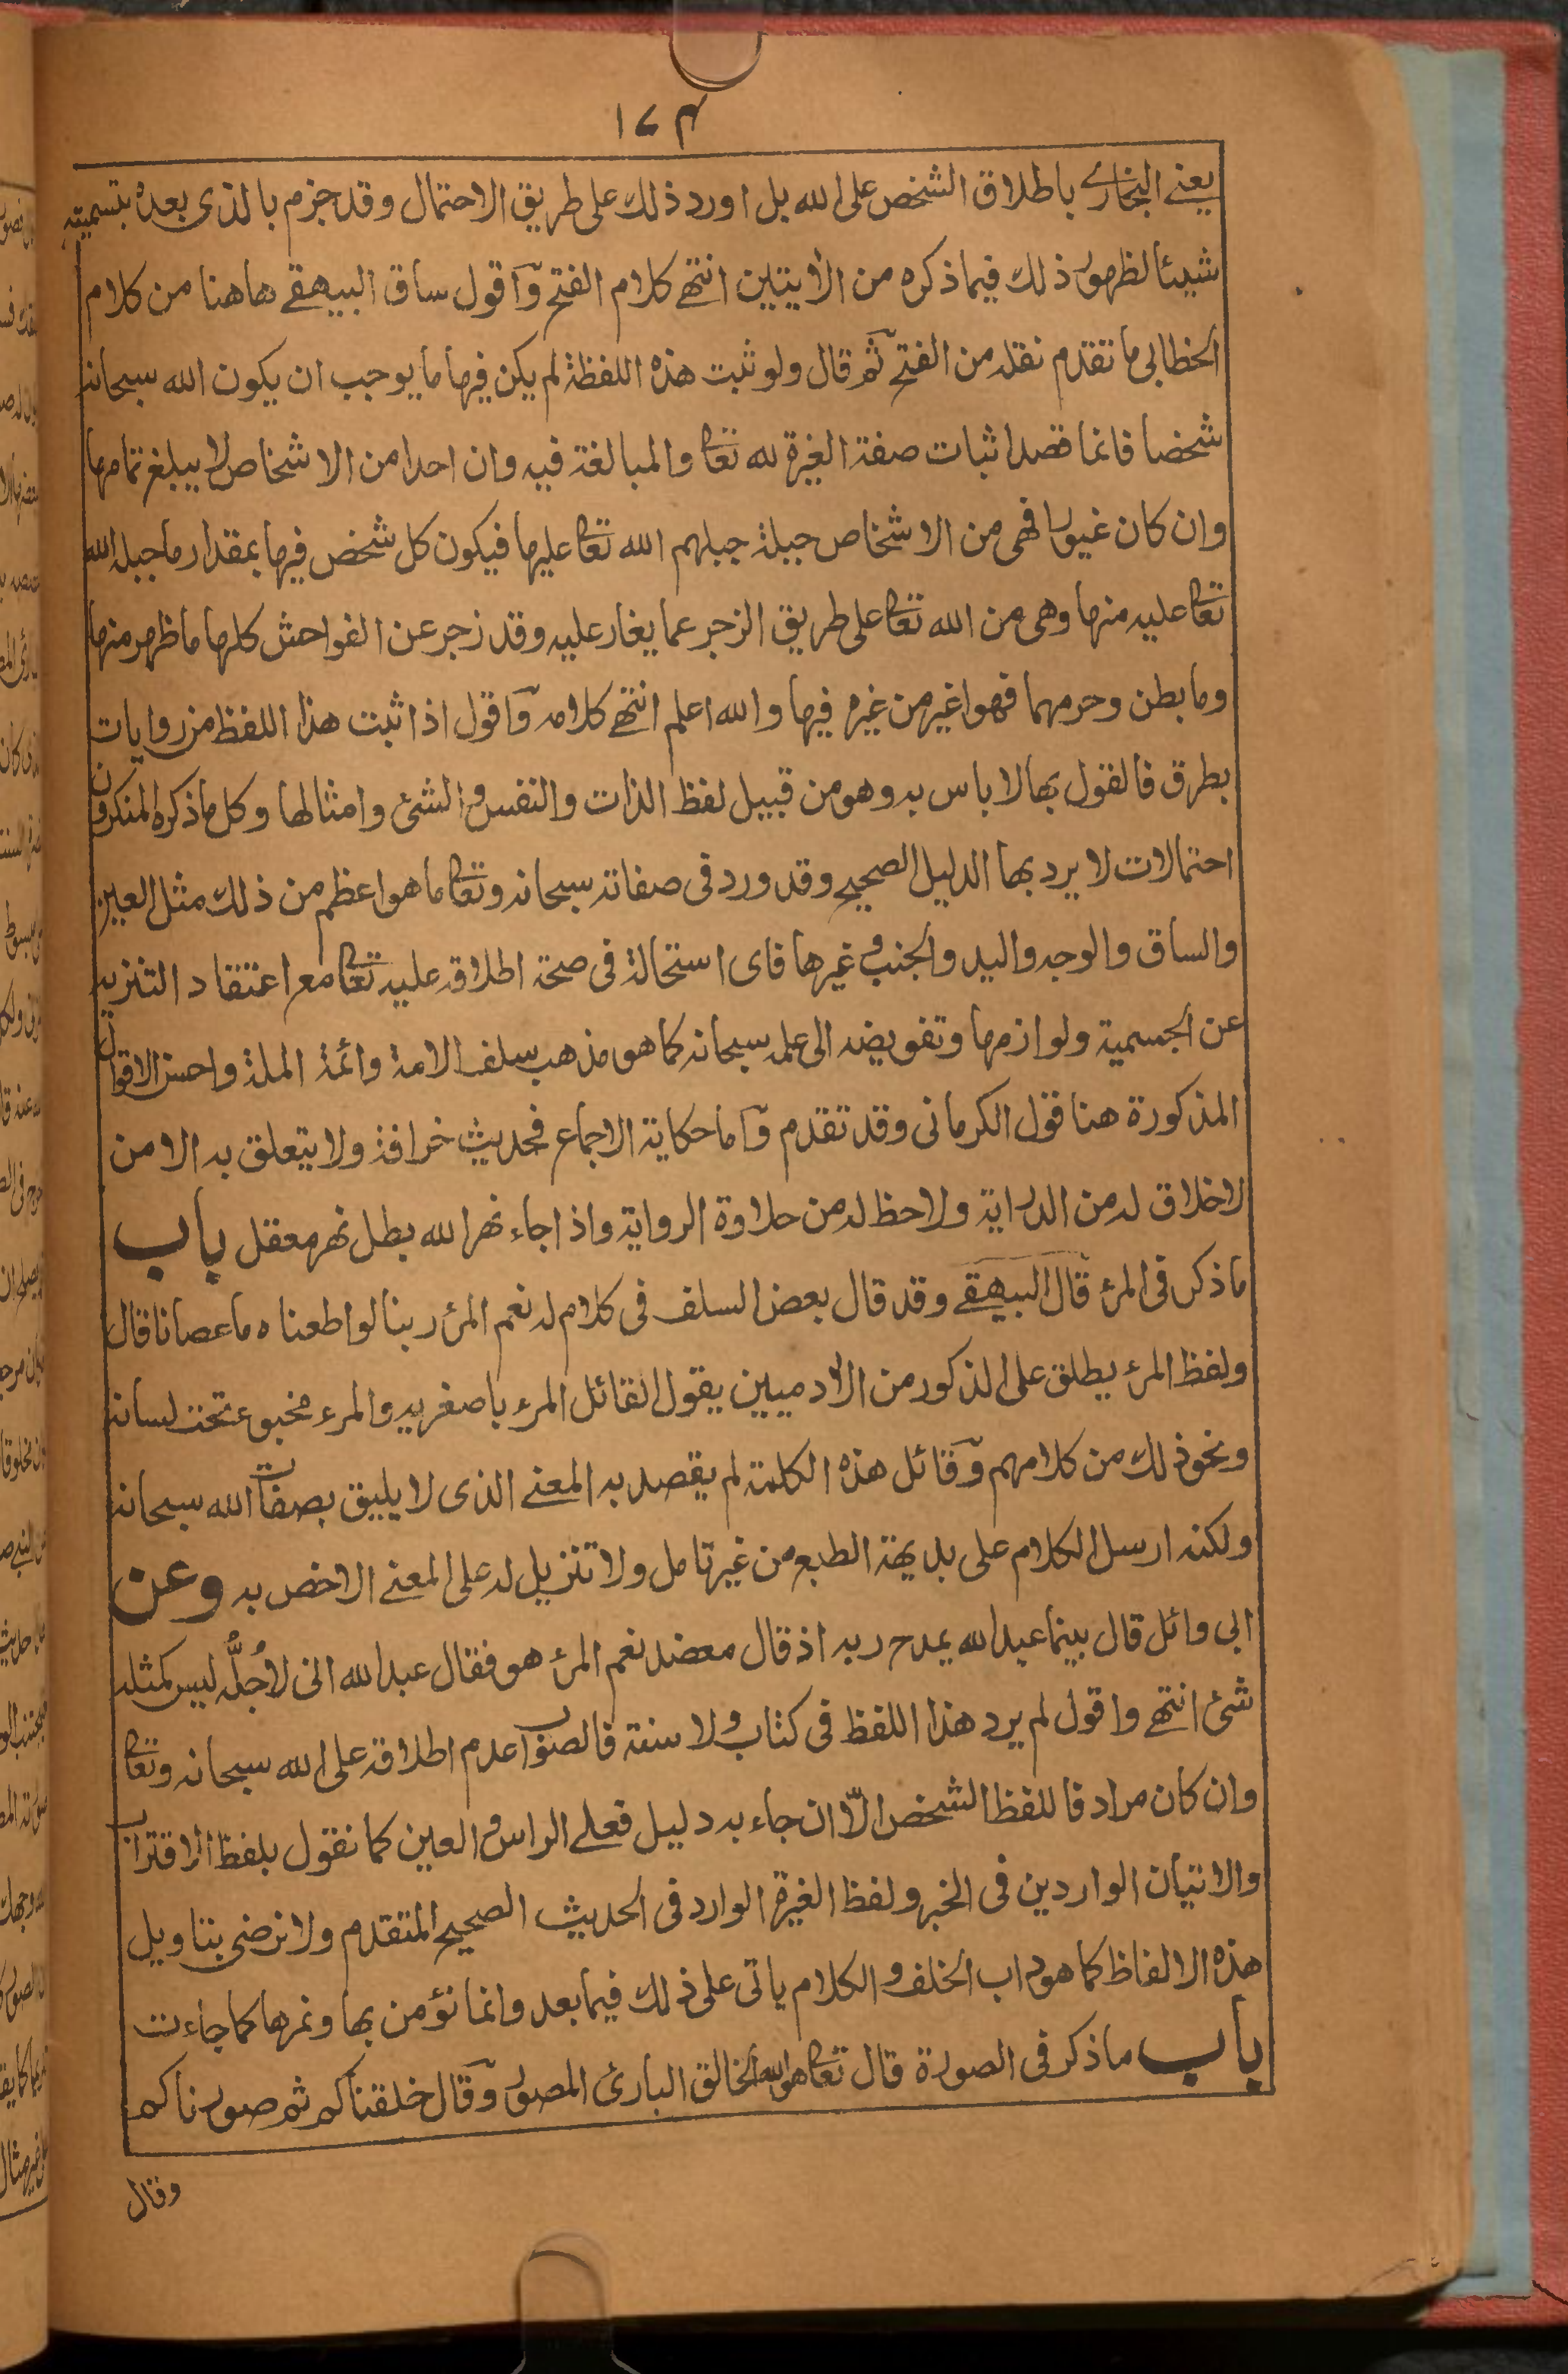 ١٧٤
يعنى البخارى باطلاق الشخص على الله بل اورد ذلك على طريق الاحتمال وقد جزم بالذى بعده بتسميته
شيئا لظهور ذلك فيما ذكره من الآيتين انتهى كلام الفتح وآقول ساق البيهقى هاهنا من كلام
الخطابى ما تقدم نقله من الفتح ثم قال ولو ثبت هذه اللفظة لم يكن فيها ما يوجب ان يكون الله سبحانه
شخصا فانما قصد اثبات صفة الغيرة لله تعالى والمبالغة فيه وان احدا من الاشخاص لا يبلغ تمامها
وان كان غيورا فهى من الاشخاص جبلة جبلهم الله تعالى عليها فيكون كل شخص فيها بمقدار ما جبله الله
تعالى عليه منها وهى من الله تعالى على طريق الزجر عما يغار عليه وقد زجر عن الفواحش كلها ما ظهر منها
وما بطن وحرمهما فهو اغير من غيره فيها والله اعلم انتهى كلامه وآقول اذا ثبت هذا اللفظ من روايات
بطرق فالقول بها لا باس به وهو من قبيل لفظ الذات والنفس والشئ وامثالها وكل ما ذكره المنكرون
احتمالات لا يرد بها الدليل الصحيح وقد ورد فى صفاته سبحانه وتعالى ما هو اعظم من ذلك مثل العين
والساق والوجه واليد والجنب وغيرها فاى استحالة فى صحة اطلاقه عليه تعالى مع اعتقاد التنزيه
عن الجسمية ولوازمها وتفويضه الى علمه سبحانه كما هو مذهب سلف الامة وائمة الملة واحسن الاقوال
المذكورة هنا قول الكرمانى وقد تقدم وآما حكاية الاجماع فحديث خرافة ولا يتعلق به الا من
لا خلاق له من الدراية ولا حظ له من حلاوة الرواية واذا جاء نهر الله بطل نهر معقل باب
ما ذكر فى المرء قال البيهقى وقد قال بعض السلف فى كلام له نعم المرء ربنا لو اطعناه ما عصانا قال
ولفظ المرء يطلق على المذكور من الآدميين يقول القائل المرء باصغريه والمرء مخبوء تحت لسانه
ونحو ذلك من كلامهم وقائل هذه الكلمة لم يقصد به المعنى الذى لا يليق بصفات الله سبحانه
ولكنه ارسل الكلام على بديهة الطبع من غير تامل ولا تنزيل له على المعنى الاخص به وعن
ابى وائل قال بينما عبد الله يمدح ربه اذ قال معضد نعم المرء هو فقال عبد الله انى لاُجلُّه ليس كمثله
شئ انتهى واقول لم يرد هذا اللفظ فى كتاب ولا سنة فالصواب عدم اطلاقه على الله سبحانه وتعالى
وان كان مرادفا للفظ الشخص الّا ان جاء به دليل فعلى الراس والعين كما نقول بلفظ الاقتراب
والاتيان الواردين فى الخبر ولفظ الغيرة الوارد فى الحديث الصحيح المتقدم ولا نرضى بتاويل
هذه الالفاظ كما هو داب الخلف والكلام ياتى على ذلك فيما بعد وانما نؤمن بها ونمرها كما جاءت
باب ما ذكر فى الصورة قال تعالى هو الله الخالق البارئ المصور وقال خلقناكم ثم صورناكم
وقال